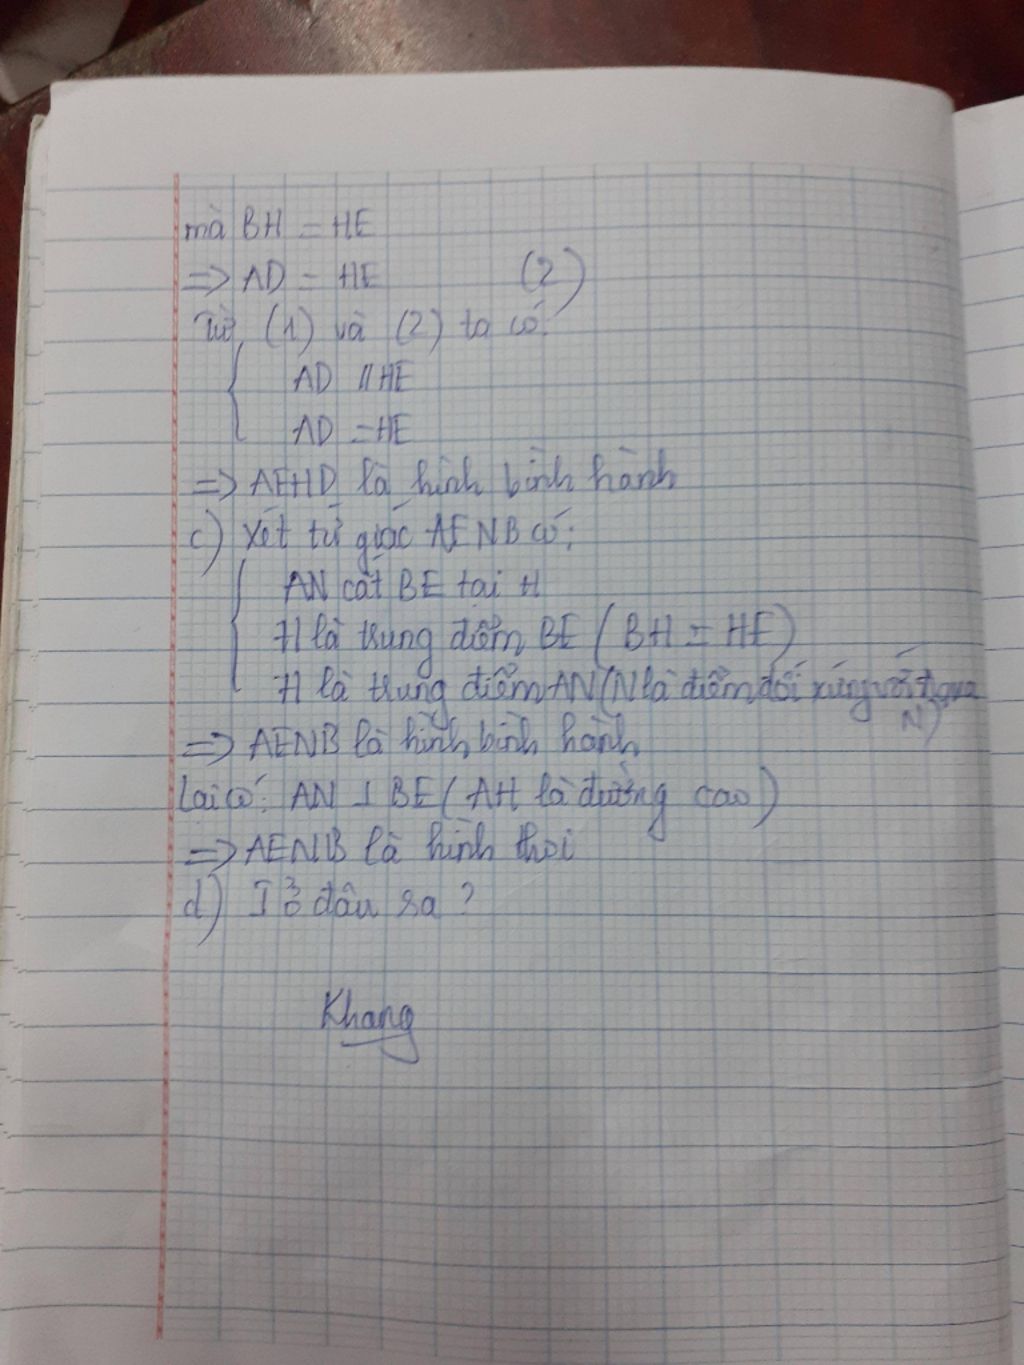 mà BH = HE
=> AD = HE (2)
Từ (1) và (2) ta có:
AD // HE
AD = HE
=> AEHD là hình bình hành
c) Xét tứ giác AENB có:
AN cắt BE tại H
H là trung điểm BE (BH = HE)
H là trung điểm AN (N là điểm đối xứng với A qua
N)
=> AENB là hình bình hành
Lại có: AN ⊥ BE (AH là đường cao)
=> AENB là hình thoi
d) I ở đâu ra ?
Khang